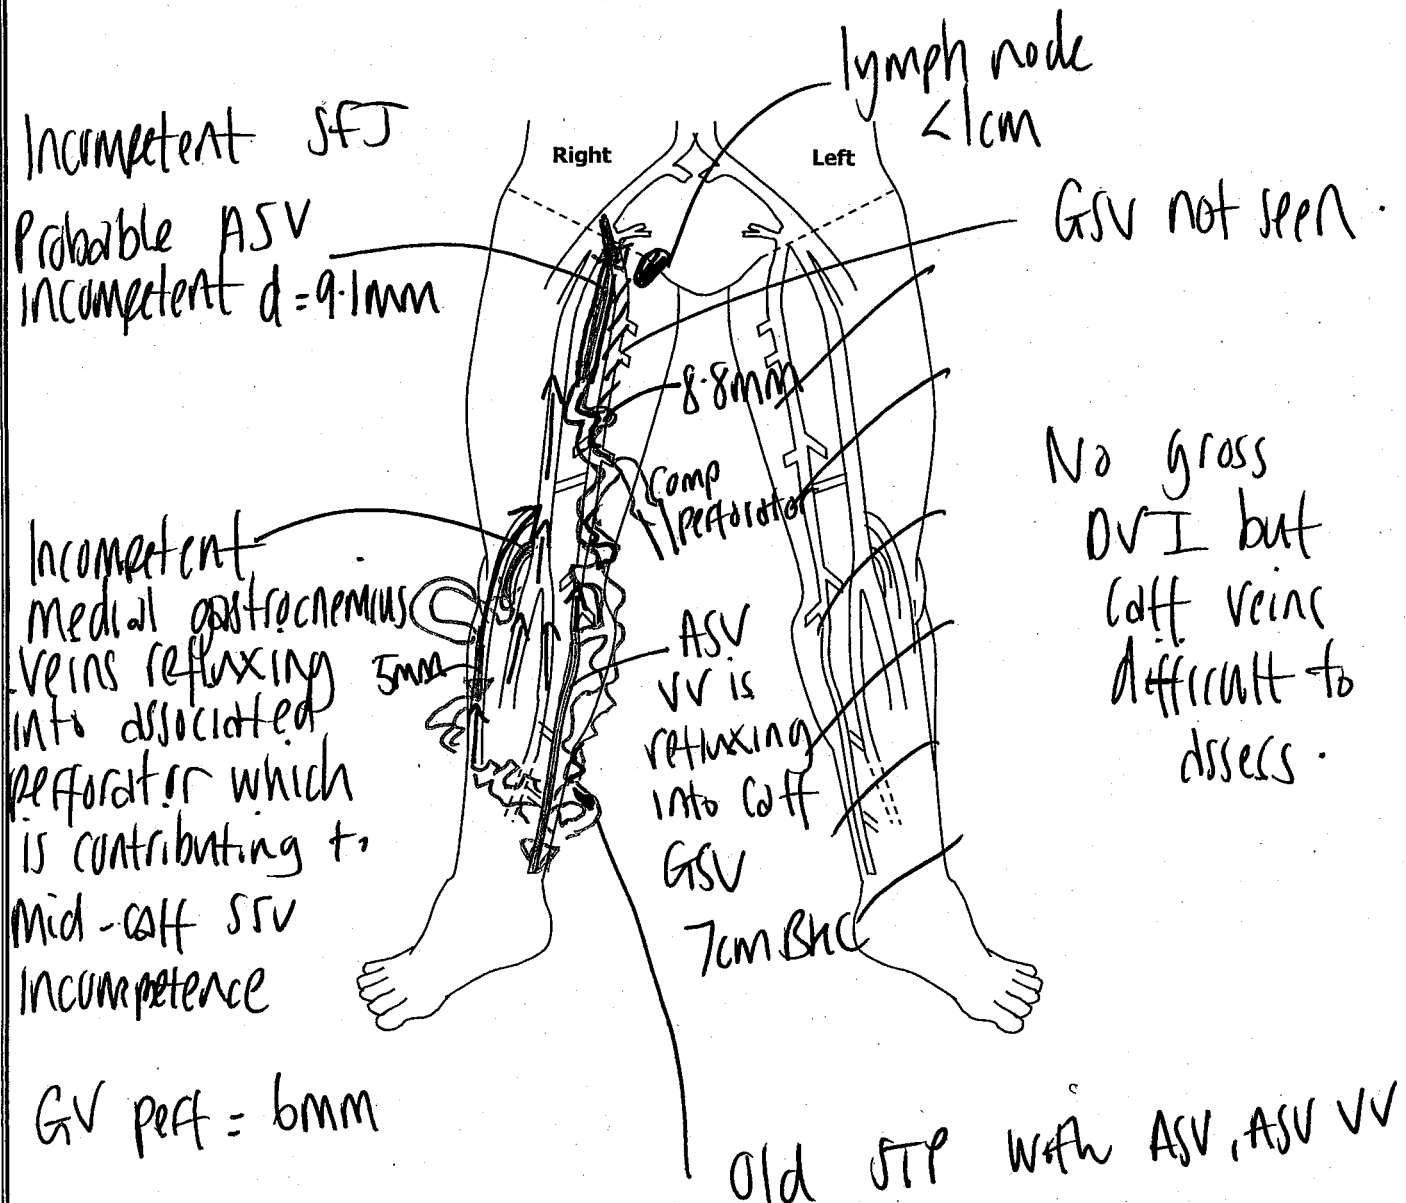 lymph node
<1cm
Incompetent SFJ
Right
Left
GSV not seen.
Probable ASV
incompetent d=9.1mm
8.8mm
Comp
perforator
No gross
DVI but
Calf veins
difficult to
assess.
Incompetent
medial gastrocnemius
veins refluxing
into associated
perforator which
is contributing to
mid-calf SSV
incompetence
5mm
ASV
VV is
refluxing
into calf
GSV
7cm BKC
GV perf = 6mm
Old STP with ASV, ASV VV